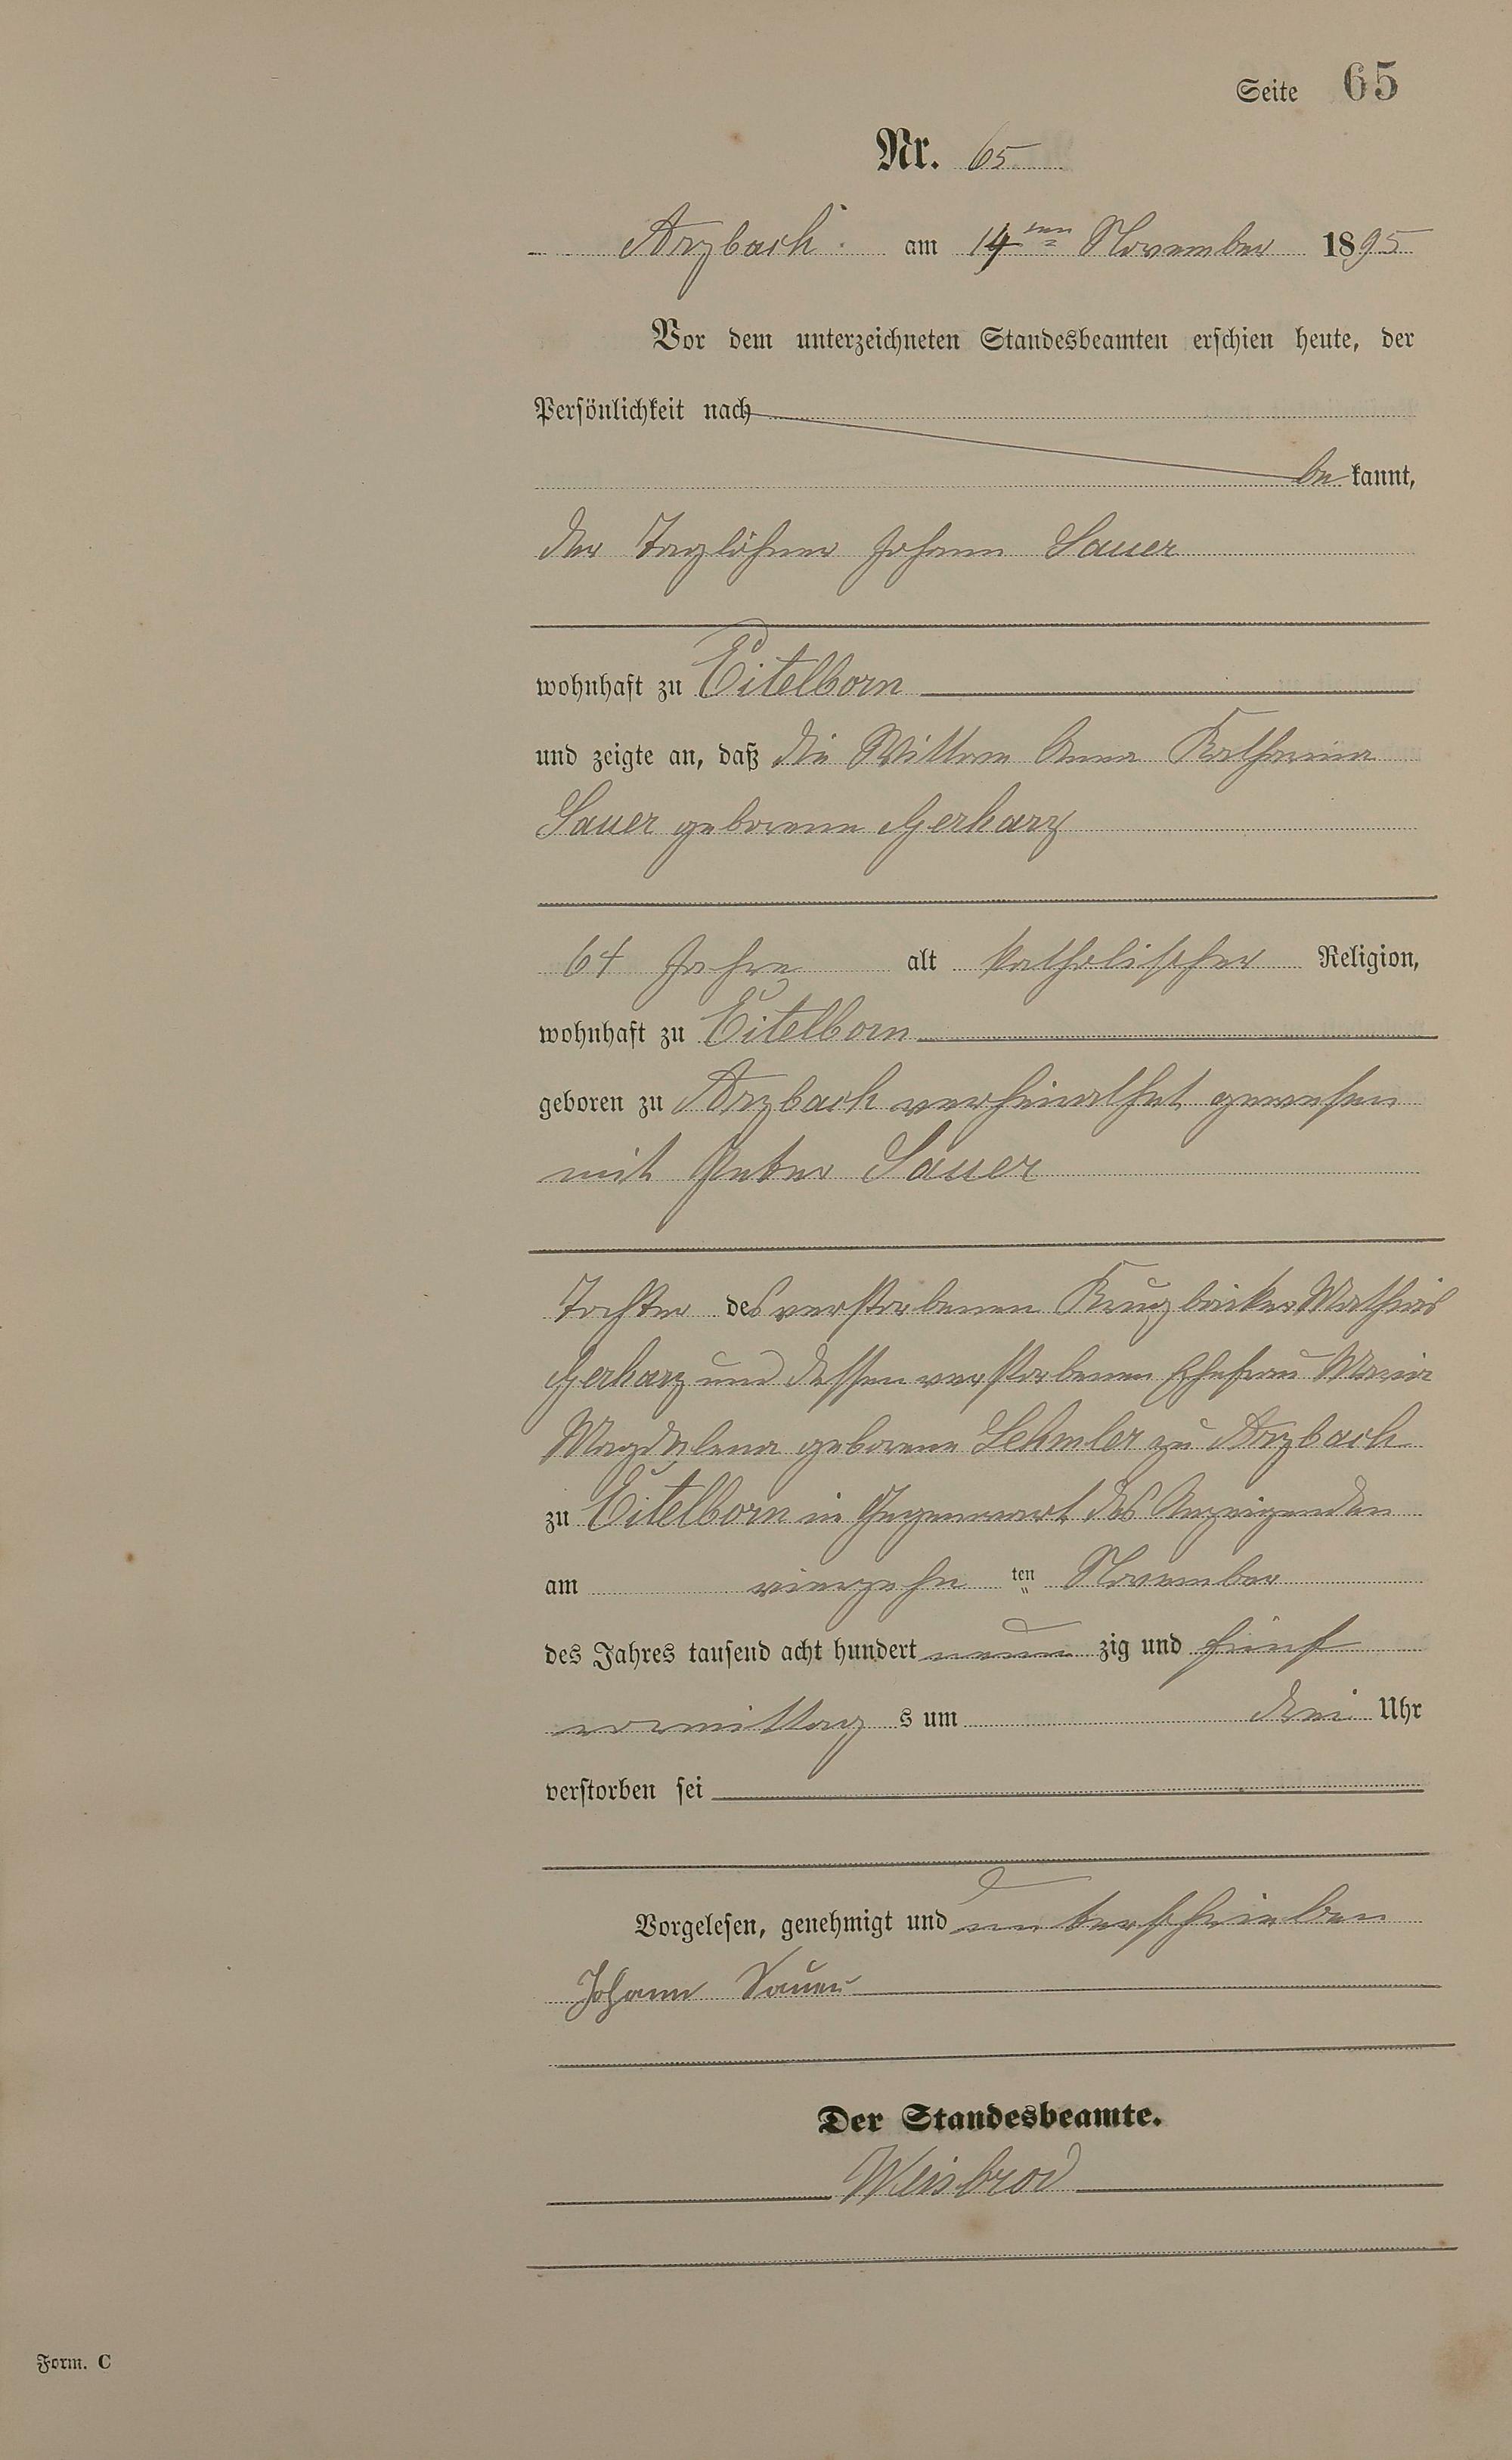 Seite 65
Nr. 65
Arzbach am 14ten November 1895
Vor dem unterzeichneten Standesbeamten erschien heute, der
Persönlichkeit nach
be kannt,
der Taglöhner Johann Sauer
wohnhaft zu Eitelborn
und zeigte an, daß die Wittwe Anna Katharina
Sauer geborene Gerharz
64 Jahre alt katholischer Religion,
wohnhaft zu Eitelborn
geboren zu Arzbach verheirathet gewesen
mit Peter Sauer
Tochter des verstorbenen Krugbäcker Mathias
Gerharz und dessen verstorbenen Ehefrau Maria
Magdalena geborene Lehmler zu Arzbach
zu Eitelborn in Gegenwart des Anzeigenden
am vierzehn ten November
des Jahres tausend acht hundert neun zig und fünf
vormittag s um drei Uhr
verstorben sei
Vorgelesen, genehmigt und unterschrieben
Johann Sauer
Der Standesbeamte.
Weisbrod
Form. C